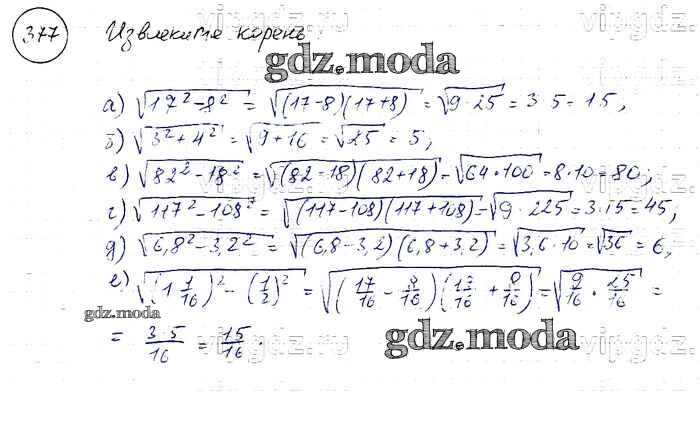 377 Извлеките корень:
gdz.moda
а) √(17² - 8²) = √((17-8)(17+8)) = √(9·25) = 3·5 = 15;
б) √(3² + 4²) = √(9+16) = √25 = 5;
в) √(82² - 18²) = √((82-18)(82+18)) = √(64·100) = 8·10 = 80;
г) √(117² - 108²) = √((117-108)(117+108)) = √(9·225) = 3·15 = 45;
д) √(6,8² - 3,2²) = √((6,8-3,2)(6,8+3,2)) = √(3,6·10) = √36 = 6,
е) √((1 1/16)² - (1/2)²) = √((17/16 - 8/16)(17/16 + 8/16)) = √(9/16 · 25/16) =
gdz.moda
= 3·5/16 = 15/16.
gdz.moda